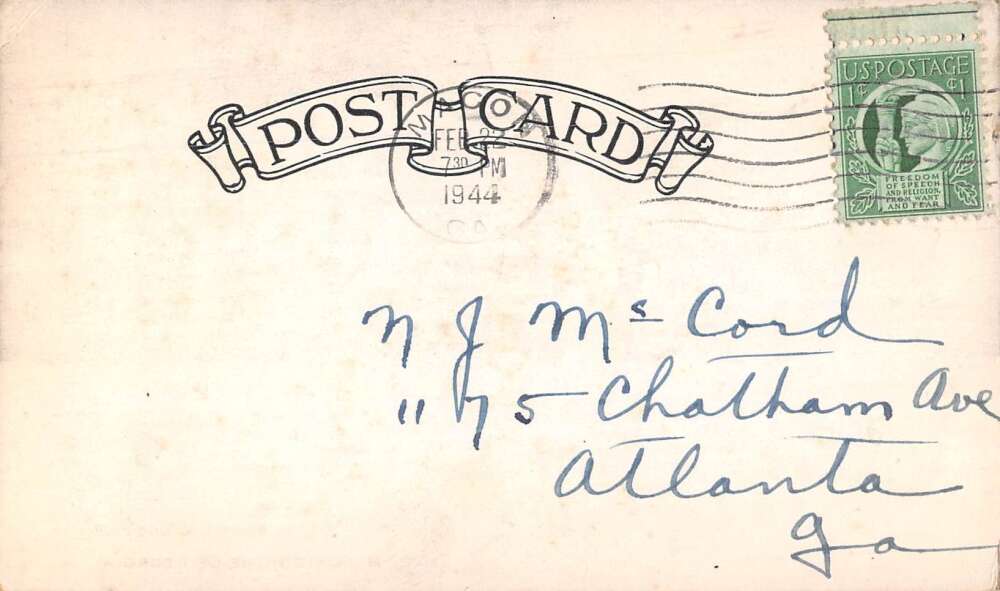 POST CARD
MACON
FEB 22
7 30 PM
1944
GA
U.S. POSTAGE
1¢ 1¢
FREEDOM
OF SPEECH
AND RELIGION,
FROM WANT
AND FEAR
N J Mc Cord
1175 Chatham Ave
Atlanta
Ga